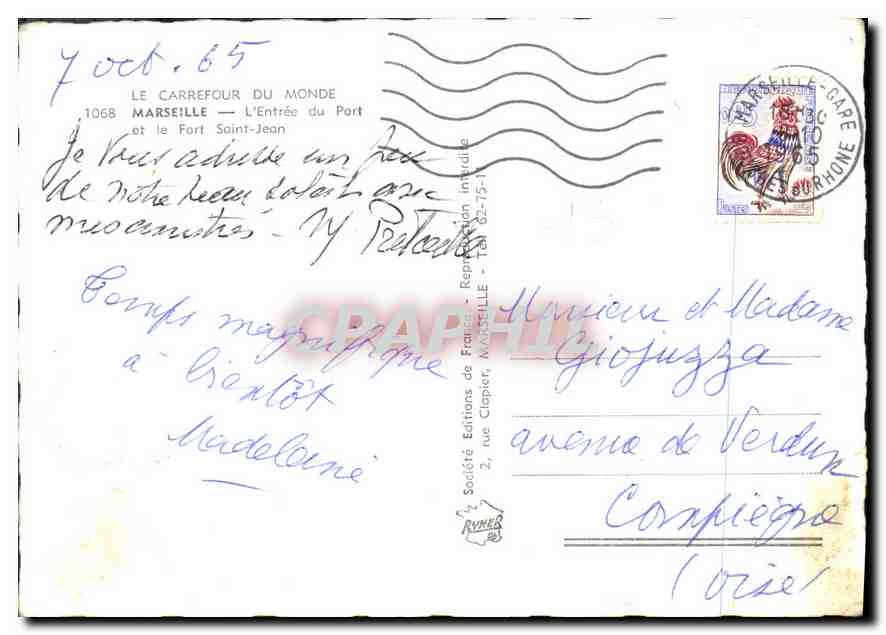 7 oct. 65
LE CARREFOUR DU MONDE
1068 MARSEILLE — L'Entrée du Port
et le Fort Saint-Jean
Je vous adresse un peu
de notre beau soleil avec
mes amitiés - M
Temps magnifique
à bientôt
Madeleine
Société Editions de France - Reproduction interdite
2, rue Clapier, MARSEILLE - Tél. 62-75-1
RYNER
MARSEILLE-GARE
10
65
BCHES DU RHONE
Monsieur et Madame
Giojuzza
avenue de Verdun
Compiègne
(Oise)
CPAPHIL